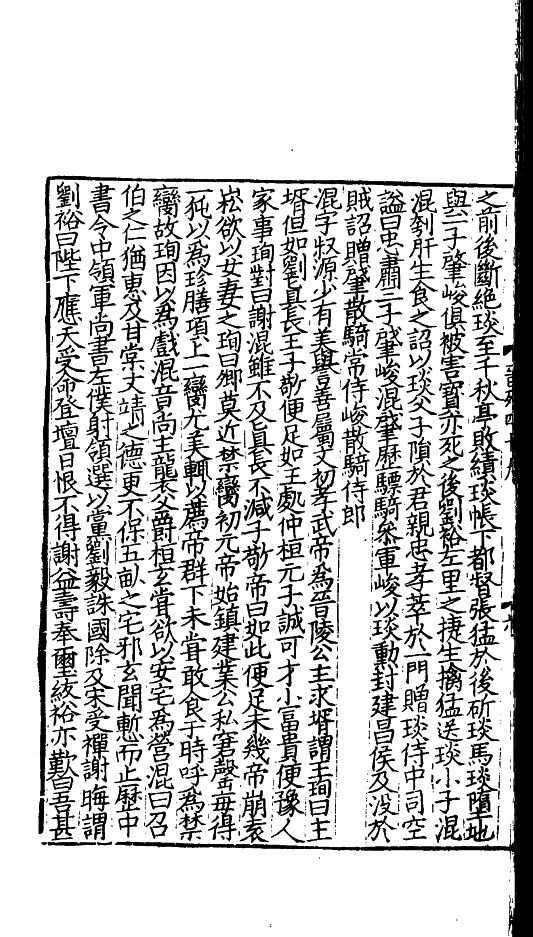 之前後斷絶琰至千秋亭敗績琰帳下都督張猛於後斫琰馬琰墮地
與二子肇峻俱被害寳亦死之後劉裕左里之捷生擒猛送琰小子混
混刳肝生食之詔以琰父子隕於君親忠孝萃於一門贈琰侍中司空
謚曰忠肅三子肇峻混肇歷驃騎叅軍峻以琰勳封建昌侯及没於
賊詔贈肇散騎常侍峻散騎侍郎
混字叔源少有美譽善屬文初孝武帝爲晉陵公主求壻謂王珣曰主
壻但如劉眞長王子敬便足如王處仲桓元子誠可才小富貴便豫人
家事珣對曰謝混雖不及眞長不減子敬帝曰如此便足未幾帝崩袁
崧欲以女妻之珣曰卿莫近禁臠初元帝始鎮建業公私窘罄每得
一㹠以爲珍膳項上一臠尤美輒以薦帝群下未甞敢食于時呼爲禁
臠故珣因以爲戲混竟尚主襲父爵桓玄甞欲以安宅爲營混曰召
伯之仁猶惠及甘棠文靖之德更不保五畝之宅邪玄聞慙而止歷中
書令中領軍尚書左僕射領選以黨劉毅誅國除及宋受禪謝晦謂
劉裕曰陛下應天受命登壇日恨不得謝益壽奉璽紱裕亦歎曰吾甚